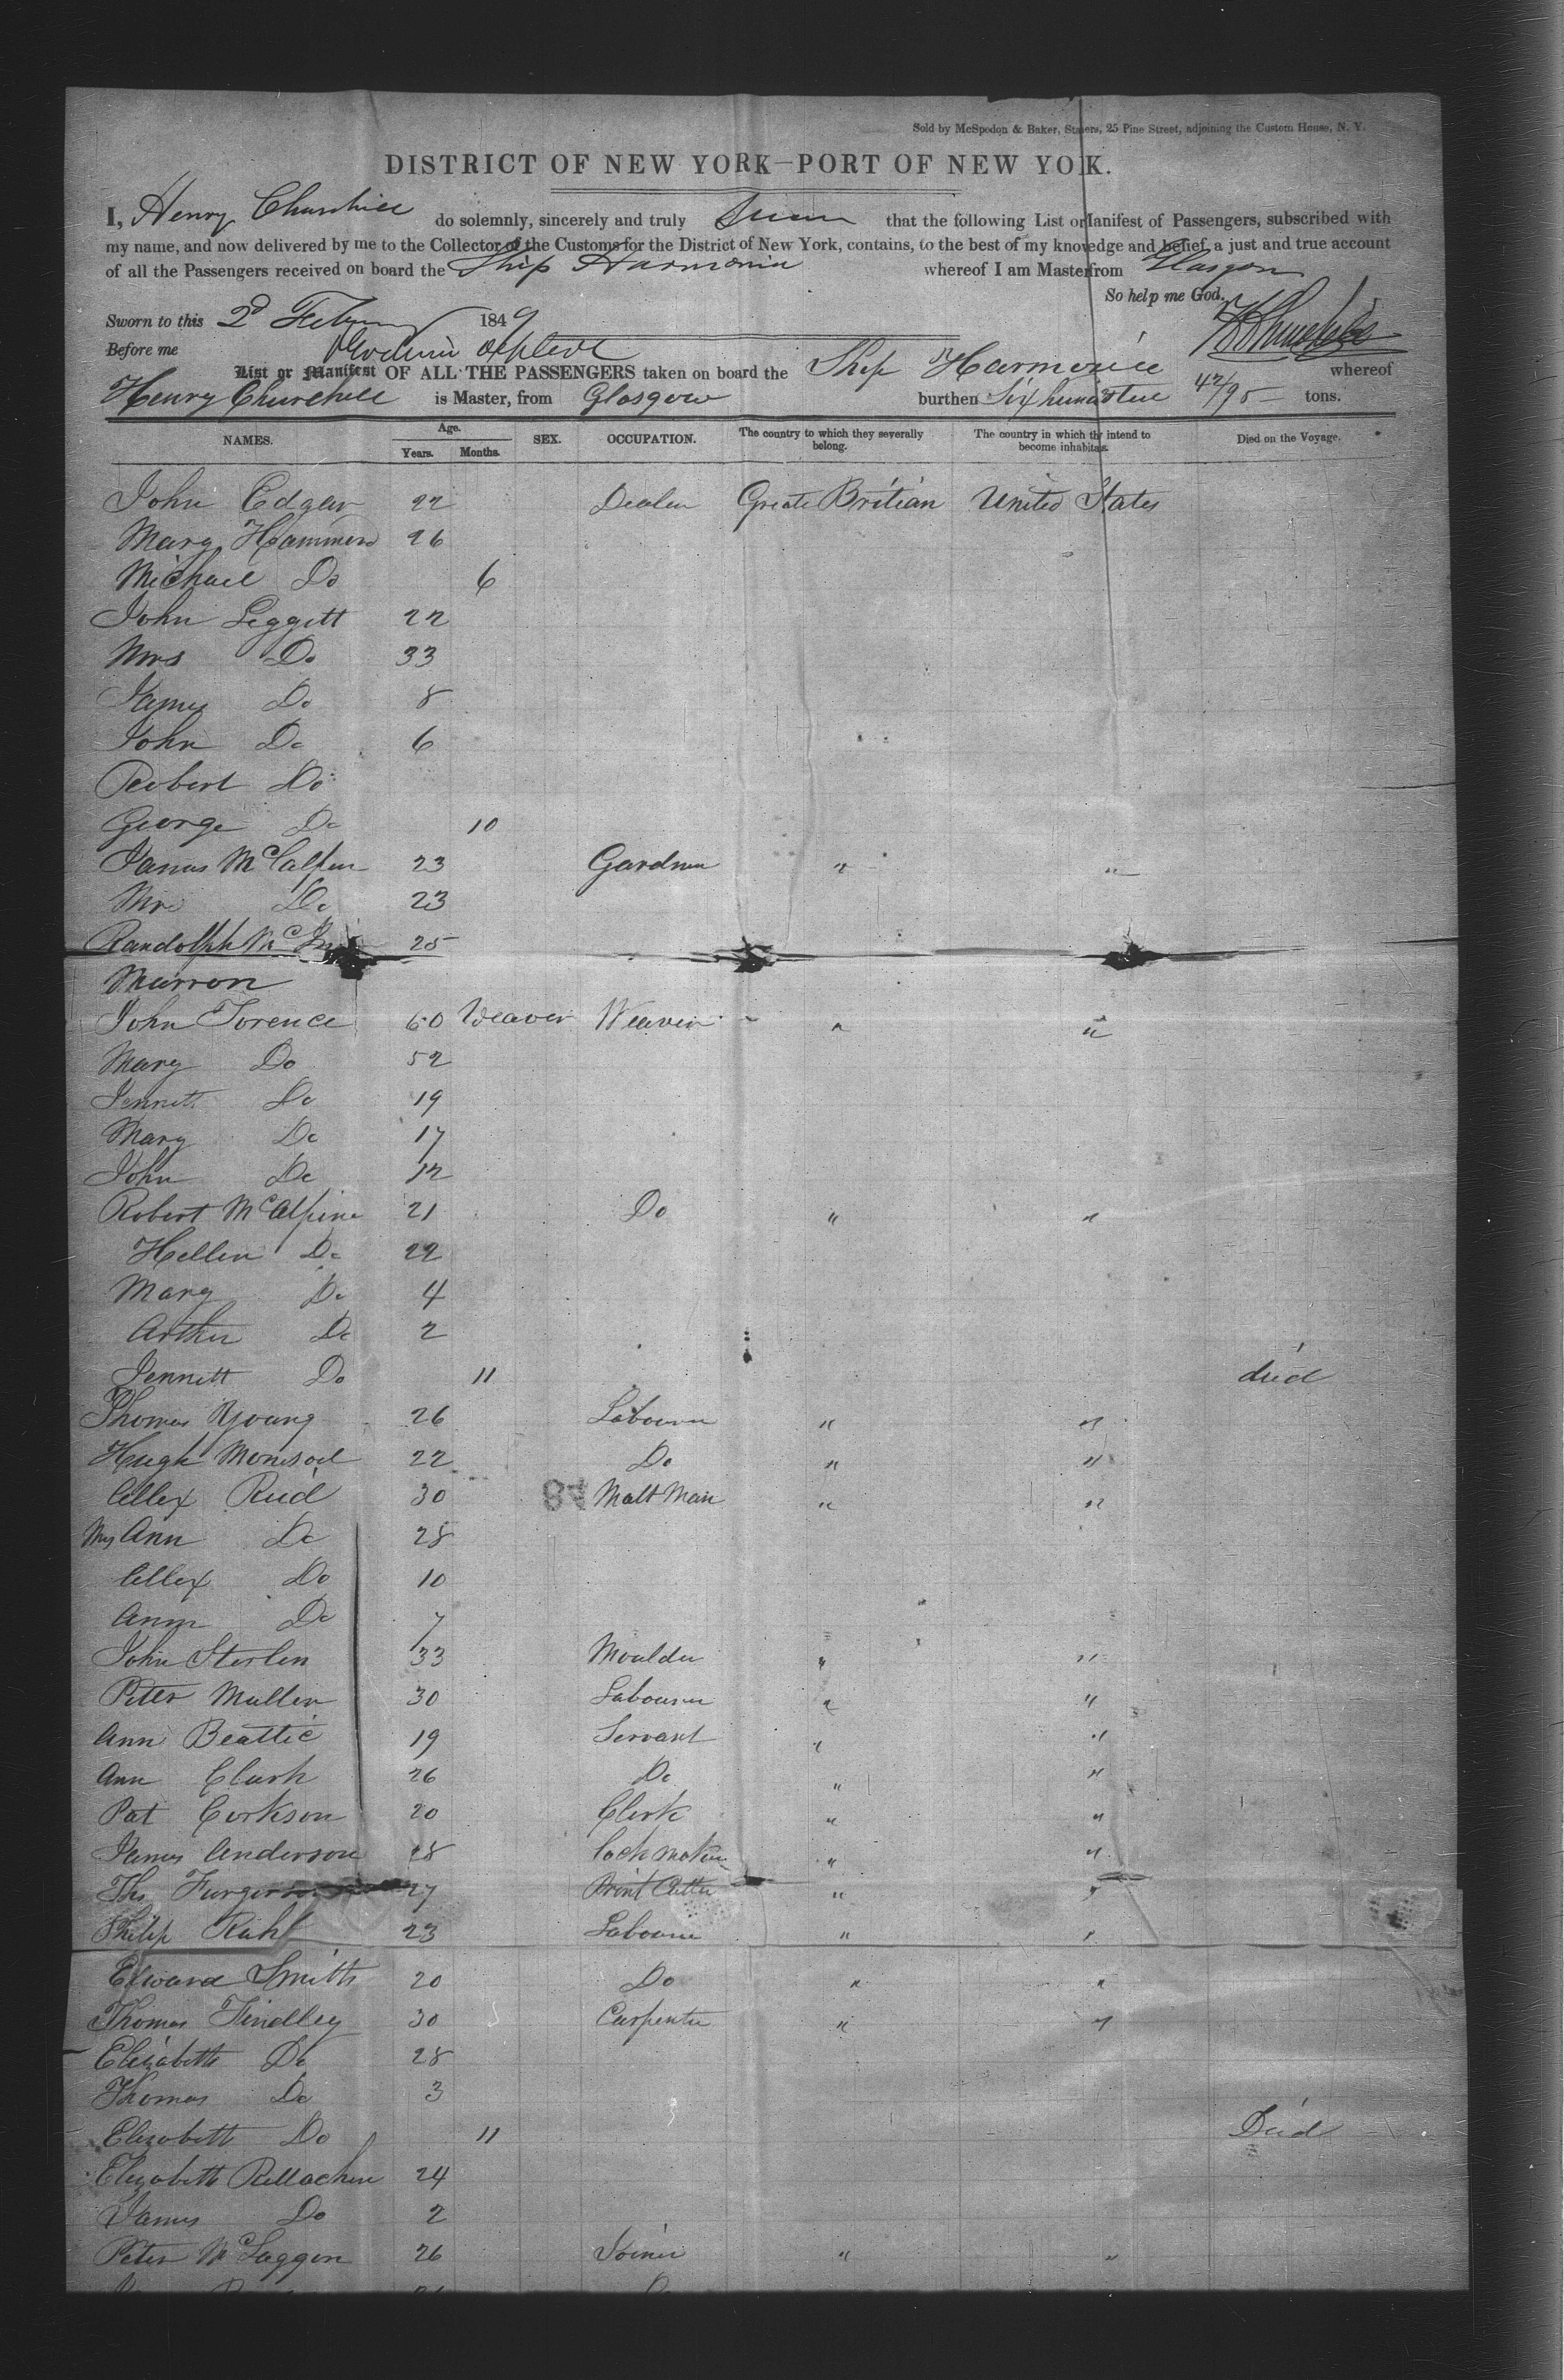 Sold by McSpedon & Baker, Staters, 25 Pine Street, adjoining the Custom House, N. Y.
DISTRICT OF NEW YORK—PORT OF NEW YOK.
I, Henry Churchill do solemnly, sincerely and truly Swear that the following List or Manifest of Passengers, subscribed with
my name, and now delivered by me to the Collector of the Customs for the District of New York, contains, to the best of my knowledge and belief, a just and true account
of all the Passengers received on board the Ship Harmonia whereof I am Master from Glasgow
So help me God.
Sworn to this 2d Feby 1849
Before me
List or Manifest OF ALL THE PASSENGERS taken on board the Ship Harmonia whereof
Henry Churchill is Master, from Glasgow burthen Six hundred 42/95 tons.
NAMES. Age. Years. Months. SEX. OCCUPATION. The country to which they severally belong. The country in which they intend to become inhabitants. Died on the Voyage.
John Edgar 22 Dealer Great Britian United States
Mary Hammend 26
Michael Do 6
John Leggett 22
Mrs Do 33
James Do 8
John Do 6
Robert Do
George Do 10
James McCalpin 23 Gardner " "
Mrs Do 23
Randolph Mc 25
Marron
John Torence 60 Weaver Weaver " "
Mary Do 52
Jennett Do 19
Mary Do 17
John Do 12
Robert McAlpine 21 Do " "
Hellen Do 22
Mary Do 4
Arther Do 2
Jennett Do 11 died
Thomas Young 26 Labourer " "
Hugh 22 Do " "
Allex Reid 30 Malt Man " "
Mrs Ann Do 28
Allex Do 10
Ann Do 7
John Sterlen 33 Moulder " "
Peter Mullen 30 Labourer " "
Ann Beattie 19 Servant " "
Ann Clark 26 Do " "
Pat Corkson 20 Clerk " "
James Anderson 28 " "
Ths Furgerson 27 Print Cutter " "
Philip 23 Labourer " "
Edward Smith 20 Do " "
Thomas Findlley 30 Carpenter " "
Elizabeth Do 28
Thomas Do 3
Elezabeth Do 11 Died
Elezabeth 24
James Do 2
Peter McLaggon 26 Joiner " "